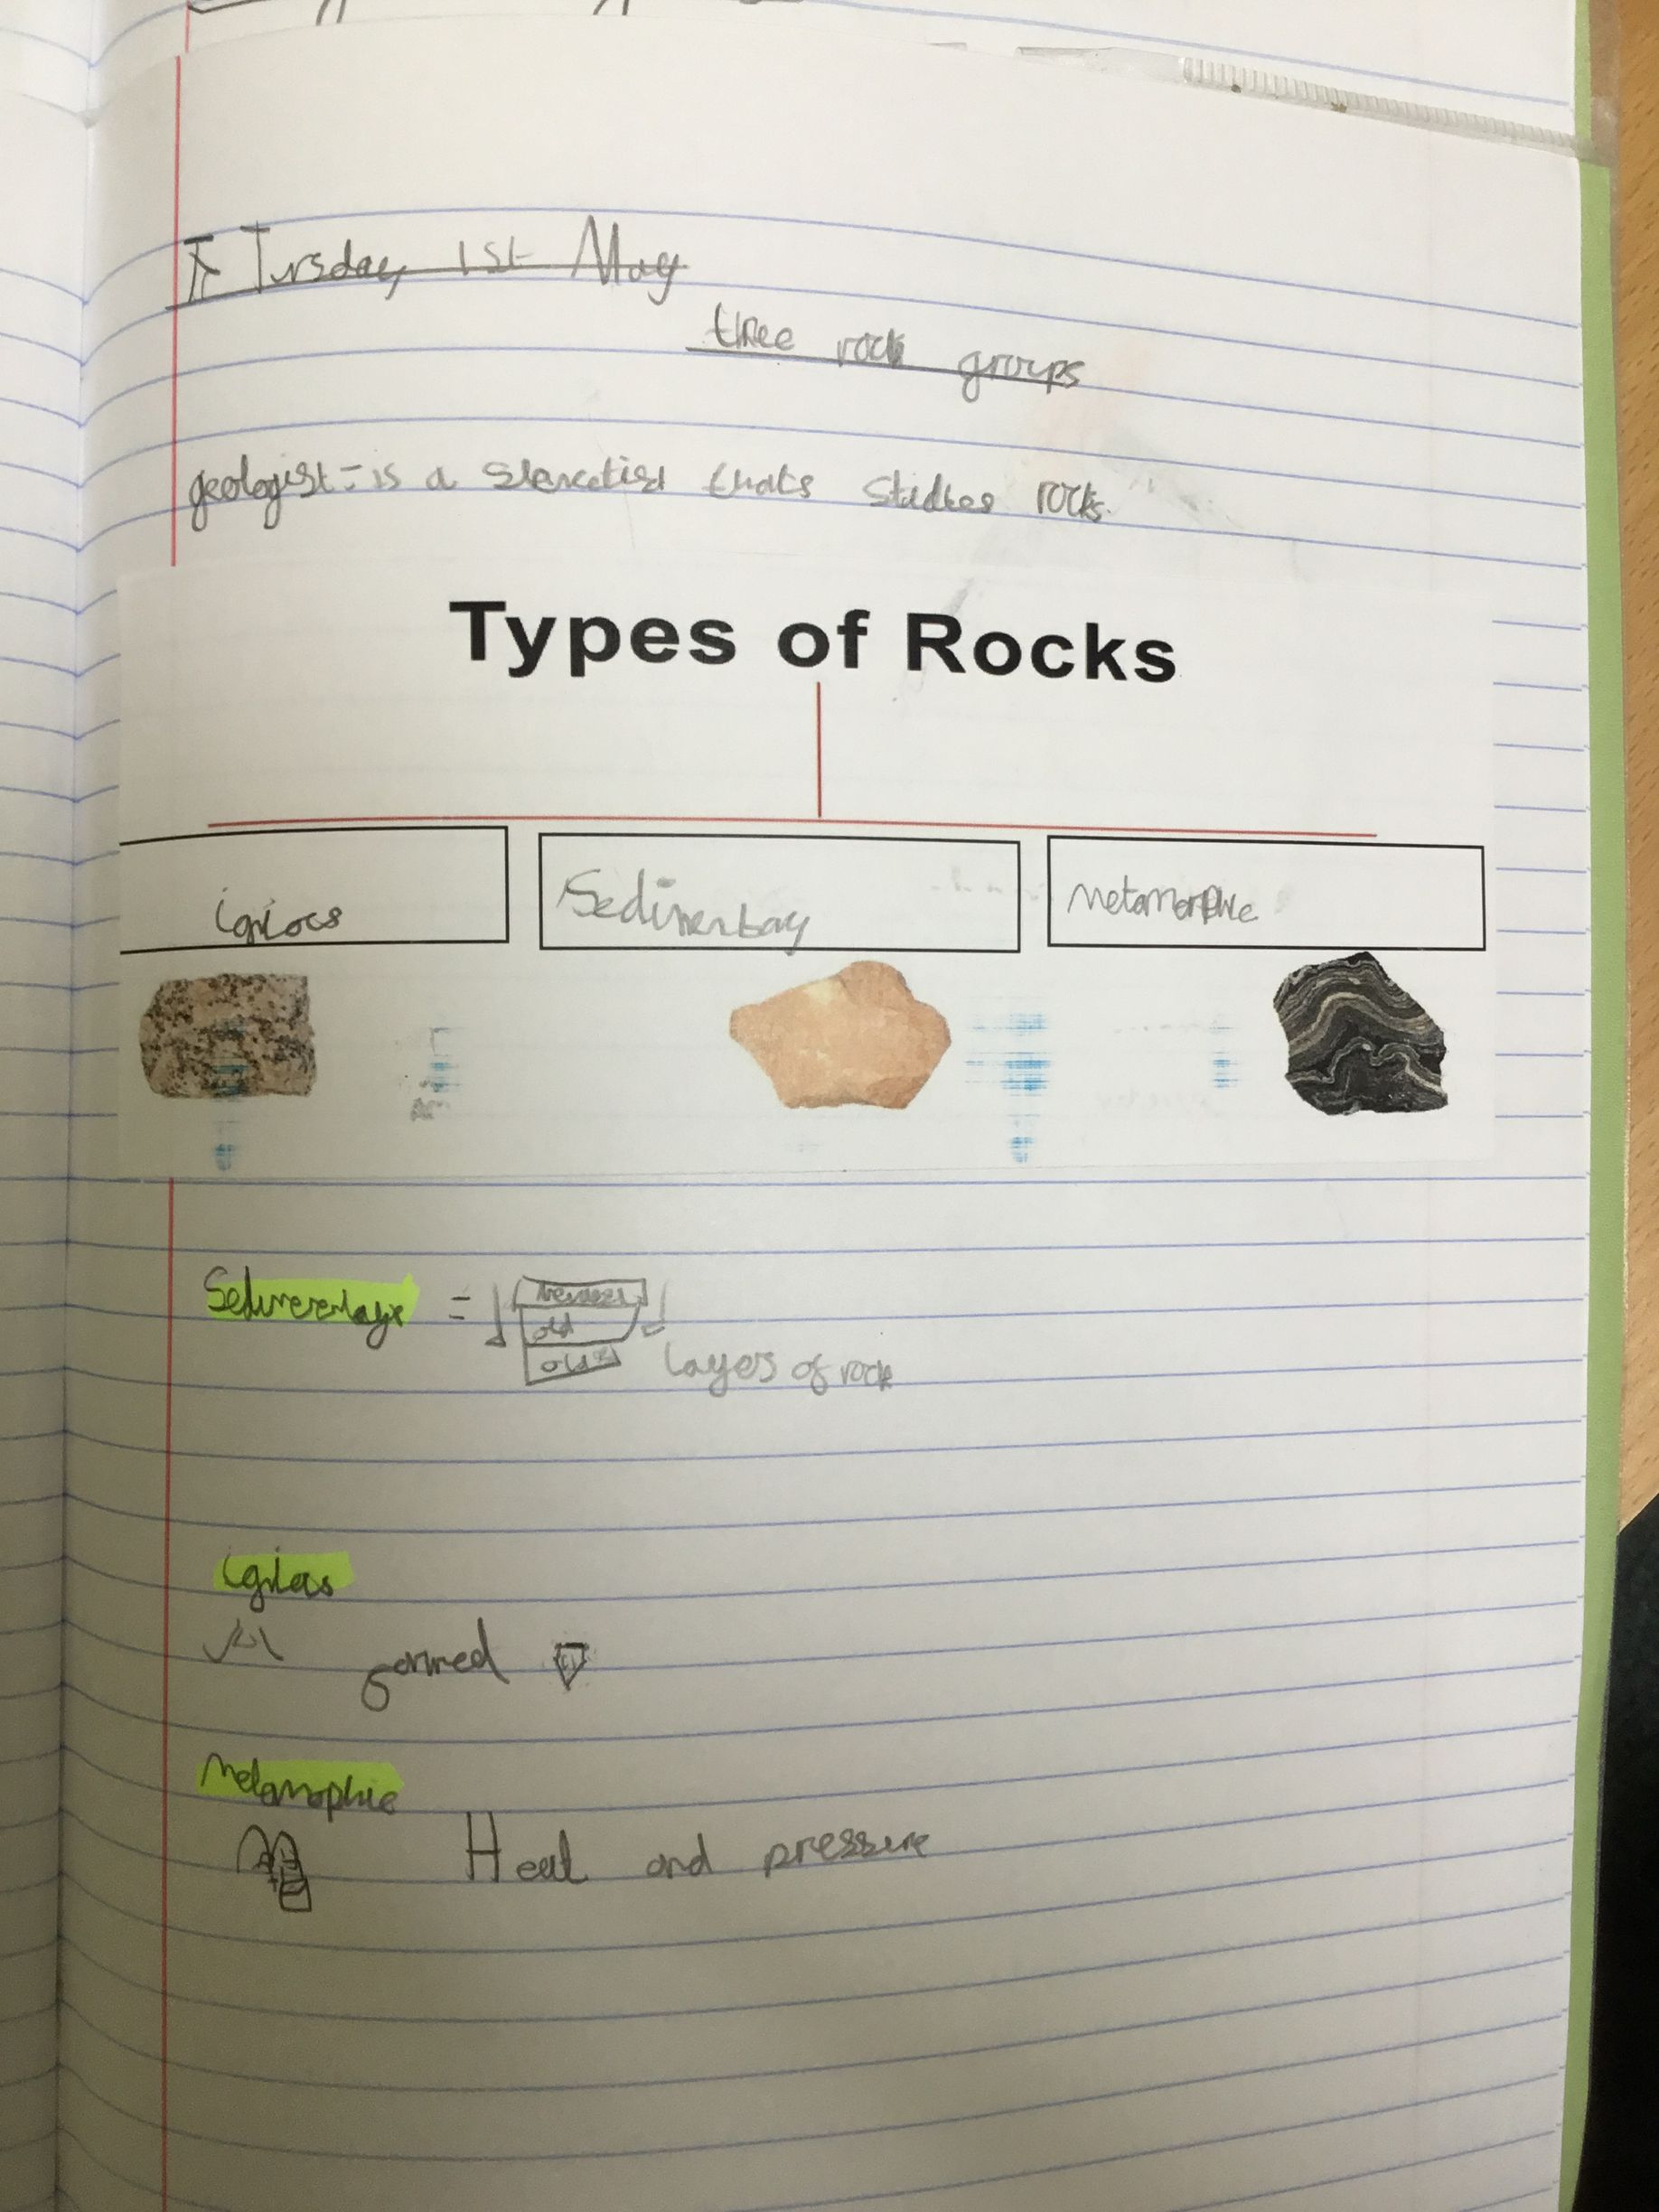 Tursday 1st May
three rock groups
geologist = is a siencetist thats studies rocks.
Types of Rocks
igiocs
Sedimentay
metamorphic
Sedimentay =
old
layers of rock
formed
metamophic
Heat and pressure